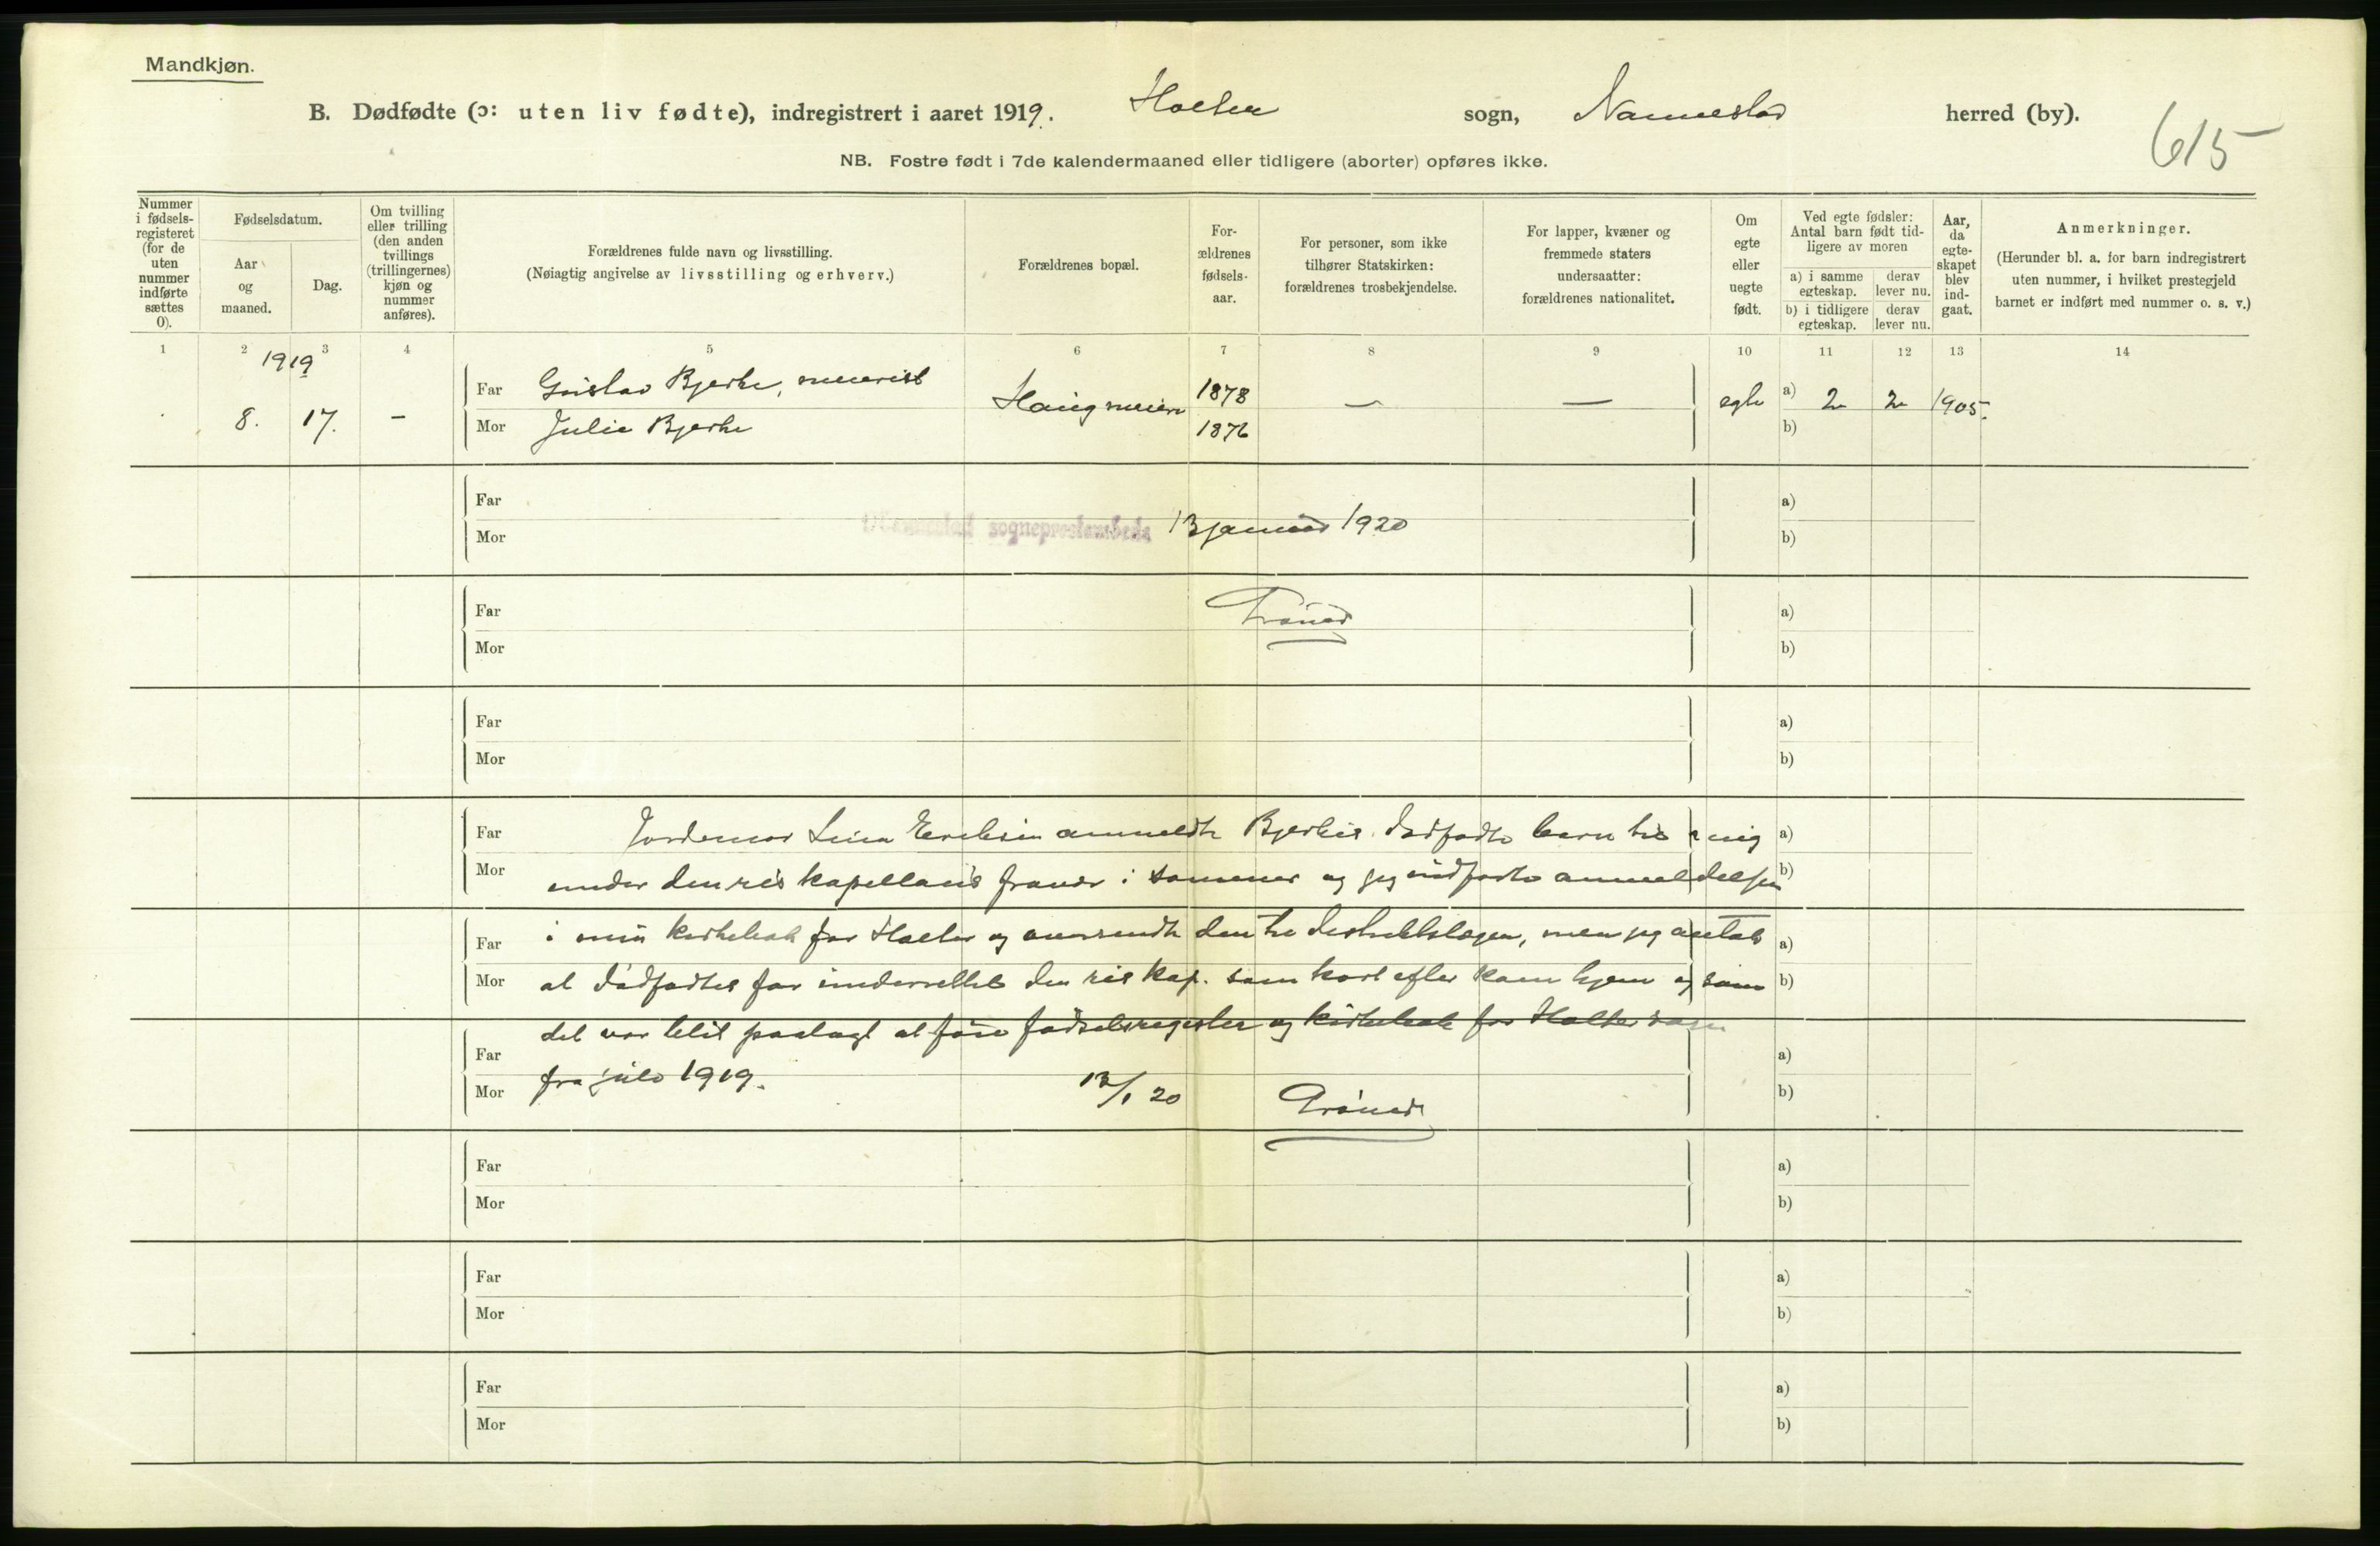 Mandkjøn.
B. Dødfødte (ɔ: uten liv fødte), indregistrert i aaret 1919. Holter sogn, Nannestad herred (by).
615
NB. Fostre født i 7de kalendermaaned eller tidligere (aborter) opføres ikke.
Nummer i fødselsregisteret (for de uten nummer indførte sættes 0).
Fødselsdatum.
Aar og maaned.
Dag.
Om tvilling eller trilling (den anden tvillings (trillingernes) kjøn og nummer anføres).
Forældrenes fulde navn og livsstilling.
(Nøiagtig angivelse av livsstilling og erhverv.)
Forældrenes bopæl.
Forældrenes fødselsaar.
For personer, som ikke tilhører Statskirken: forældrenes trosbekjendelse.
For lapper, kvæner og fremmede staters undersaatter: forældrenes nationalitet.
Om egte eller uegte født.
Ved egte fødsler: Antal barn født tidligere av moren
a) i samme egteskap. derav lever nu.
b) i tidligere egteskap. derav lever nu.
Aar, da egteskapet blev indgaat.
Anmerkninger.
(Herunder bl. a. for barn indregistrert uten nummer, i hvilket prestegjeld barnet er indført med nummer o. s. v.)
1 2 3 4 5 6 7 8 9 10 11 12 13 14
1919
Far Gustav Bjerke, meierist 1878
8. 17. – Haug meieri — — egte a) 2 2 1905.
Mor Julie Bjerke 1876 b)
Far a)
sogneprestembede 13 januar 1920
Mor b)
Far a)
Mor b)
Far a)
Mor b)
Far Jordemor Lina Eriksen anmeldte Bjerkes dødfødte barn til mig a)
Mor under den res kapellans fravær i sommer og jeg indførte anmeldelsen b)
Far i min kirkebok for Holter og oversendte den til distriktslægen, men jeg antok a)
Mor at dødfødtes far underrettet den res kap. som kort efter kom hjem og som b)
det var blit paalagt at føre fødselsregister og kirkebok for Holter sogn
Far a)
fra juli 1919. 13/1 20
Mor b)
Far a)
Mor b)
Far a)
Mor b)
Far a)
Mor b)